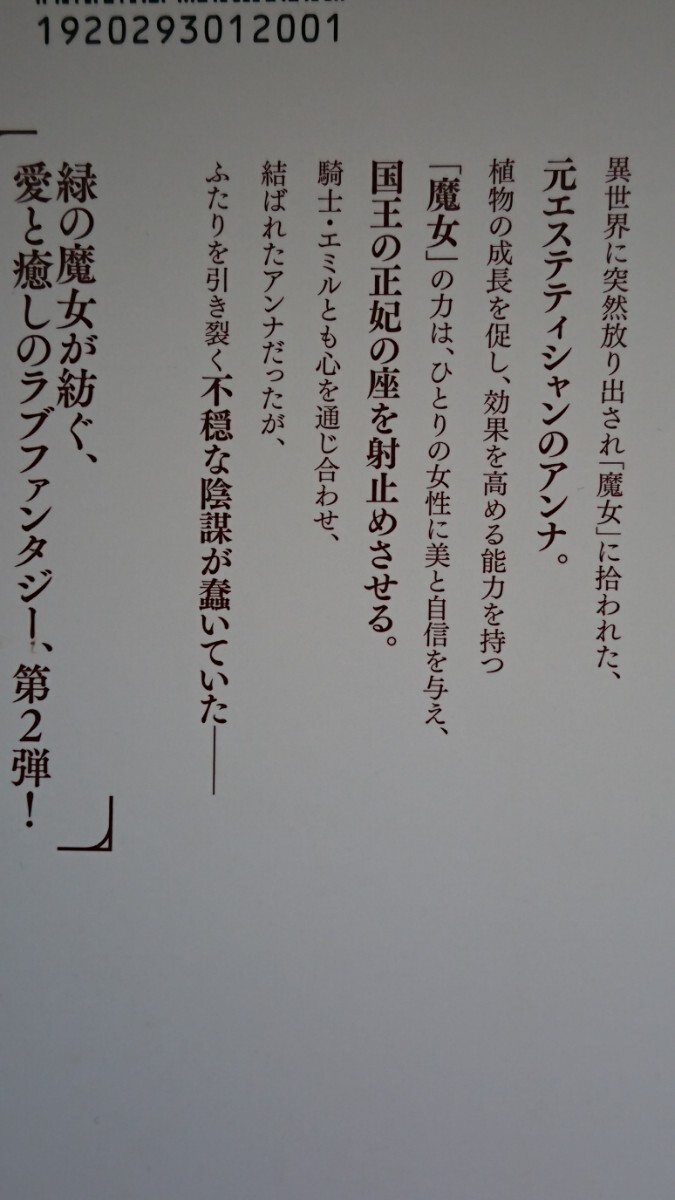 1920293012001
異世界に突然放り出され「魔女」に拾われた、
元エステティシャンのアンナ。
植物の成長を促し、効果を高める能力を持つ
「魔女」の力は、ひとりの女性に美と自信を与え、
国王の正妃の座を射止めさせる。
騎士・エミルとも心を通じ合わせ、
結ばれたアンナだったが、
ふたりを引き裂く不穏な陰謀が蠢いていた――
緑の魔女が紡ぐ、
愛と癒しのラブファンタジー、第2弾!